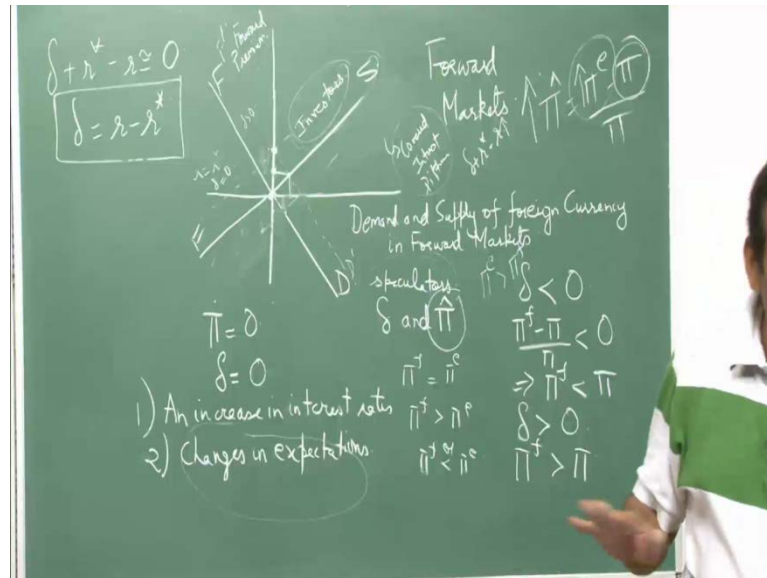 δ + r* - r ≅ 0
δ = r - r*
F
Forward
Premium
Investors
S
r = r*
δ = 0
F
D
Forward
Markets
↑ π̂ = ↑π^e - π / π
Covered
δ + r* = r
Demand and Supply of foreign Currency
in Forward Markets
speculators
δ and π̂
π^f = π^e
π^f > π^e
π^f < π^e
δ < 0
π^f - π / π < 0
⇒ π^f < π
δ > 0
π^f > π
π̂ = 0
δ = 0
1) An increase in interest rates
2) Changes in expectations